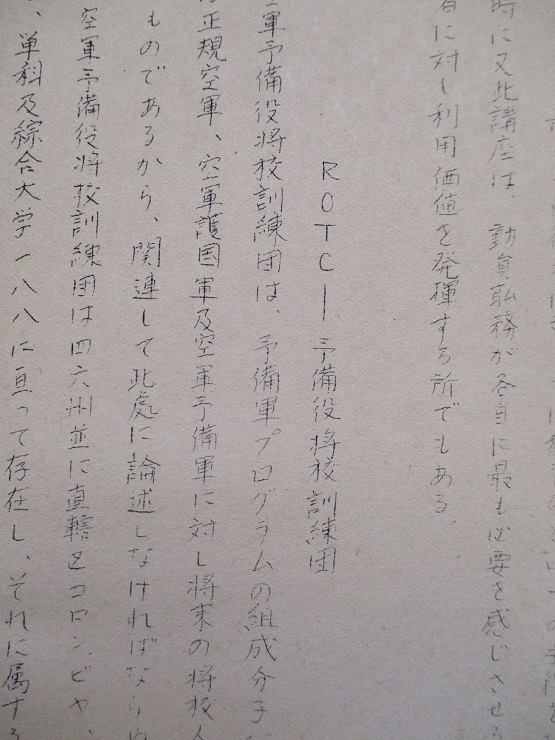 時に又此講座は、動員職務が各自に最も必要を感じさせる
者に対し利用価値を発揮する所でもある。
ROTC―予備役将校訓練団
空軍予備役将校訓練団は、予備軍プログラムの組成分子
正規空軍、空軍護国軍及空軍予備軍に対し将来の将校
ものであるから、関連して此處に論述しなければならぬ
空軍予備役将校訓練団は四六州並に直轄区コロンビヤ、
、単科及綜合大学一八八に亘って存在し、それに属する